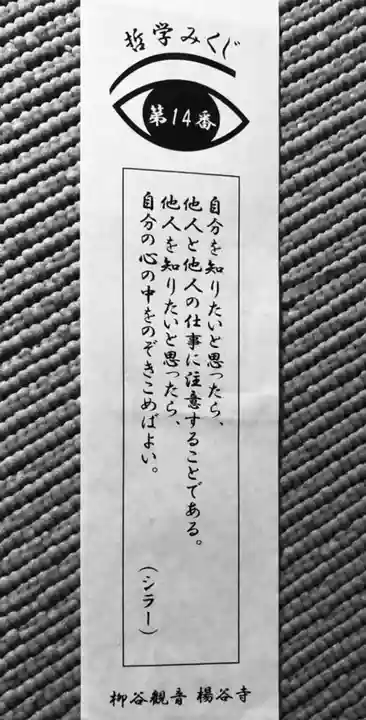 哲学みくじ
第14番
自分を知りたいと思ったら、
他人と他人の仕事に注意することである。
他人を知りたいと思ったら、
自分の心の中をのぞきこめばよい。
(シラー)
柳谷観音 楊谷寺